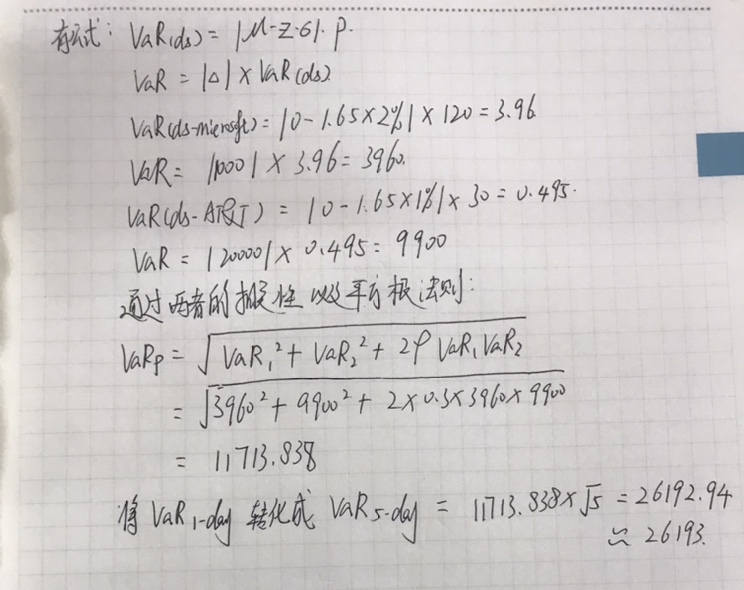 有公式: VaR(ds) = |μ-Z·σ|·P.
VaR = |Δ| × VaR(ds)
VaR(ds-microsoft) = |0-1.65×2%| × 120 = 3.96
VaR = |1000| × 3.96 = 3960.
VaR(ds-AT&T) = |0-1.65×1%| × 30 = 0.495.
VaR = |20000| × 0.495 = 9900
通过两者的相关性以及平方根法则:
VaRp = √VaR₁² + VaR₂² + 2ρ VaR₁ VaR₂
= √3960² + 9900² + 2×0.3×3960×9900
= 11713.838
将 VaR 1-day 转化成 VaR 5-day = 11713.838×√5 = 26192.94
≈ 26193.